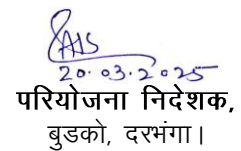 20.03.2025
परियोजना निदेशक,
बुडको, दरभंगा।